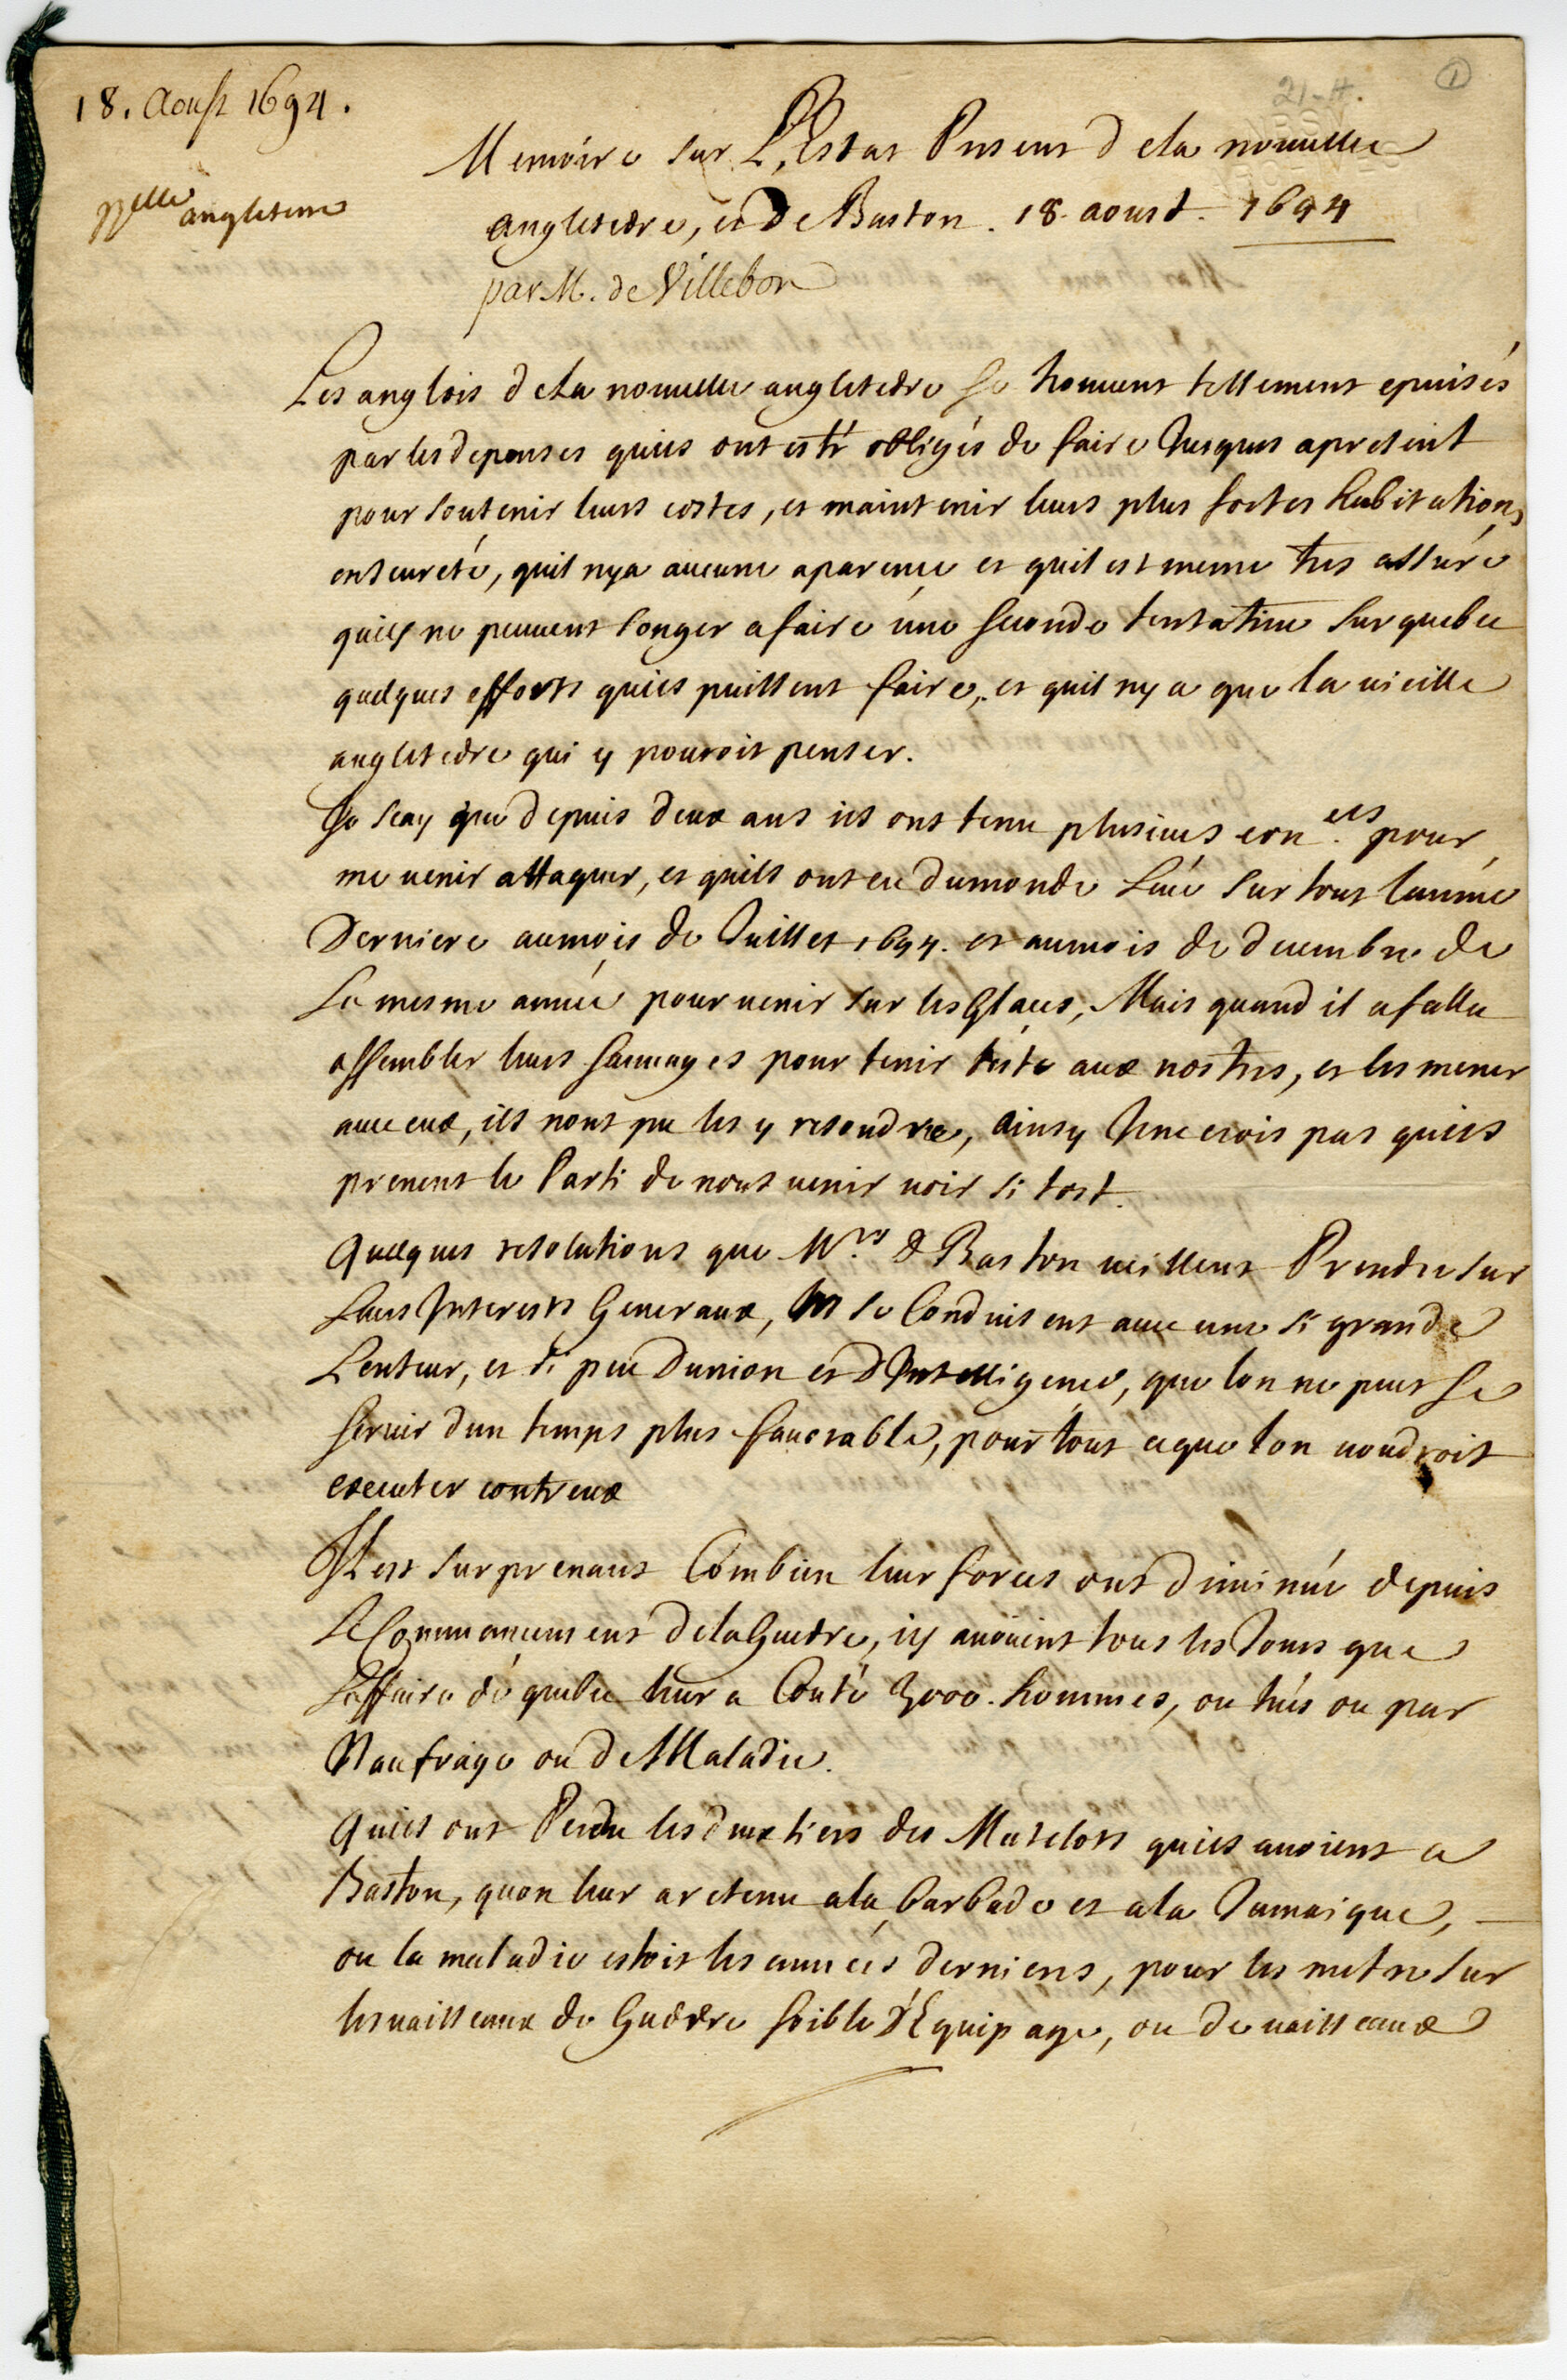 21-4.
1
18. Aoust 1694.
Nelle angleterre
Memoire sur L'Estat Present de la nouuelle
angleterre, et de Baston. 18. aoust. 1694
par M. de Villebon
Les anglois de la nouuelle angleterre se trouuent tellement epuisés
par les depenses quils ont esté obligés de faire Jusques apresent
pour soutenir leurs costes, et maintenir leurs plus fortes habitations
en seureté, quil nya aucune aparence et quil est meme tres assuré
quils ne peuuent songer a faire une seconde tentatiue sur quebec
quelques efforts quils puissent faire, et quil ny a que la vieille
angleterre qui y pouroit penser.
Je scay que depuis deux ans ils ont tenu plusieurs con.els pour
me uenir attaquer, et quils ont eu du monde Leué sur tout lannée
Derniere au mois de Juillet 1694. et au mois de decembre de
la mesme année pour uenir sur les Glaces, Mais quand il a fallu
assembler leurs sauuages pour tenir teste aux nostres, et les mener
auec eux, ils nont pu les y resoudre, ainsy Je ne crois pas quils
prenent le Parti de nous uenir uoir si tost.
Quelques resolutions que Mrs. de Baston ueillent Prendre sur
Leurs Interests Generaux, Ils se Conduisent auec une si grande
Lenteur, et si peu dunion et dIntelligence, que lon ne peut se
seruir dun temps plus fauorable, pour tout ce que lon uoudroit
executer contreux
Il est surprenant Combien leur forces ont diminué depuis
Le Commancement de la Guerre, ils auoüent tous les Jours que
Laffaire de quebec leur a Couté 3000. hommes, ou tués ou par
Naufrage ou de Maladie.
Quils ont Perdu les deux tiers des Matelots quils auoient a
Baston, quon leur a retenu a la barbade et a la Jamaique,
ou la maladie estoit les années dernieres, pour les metre sur
les uaisseaux de Guerre foible d'Equipage, ou de uaisseaux